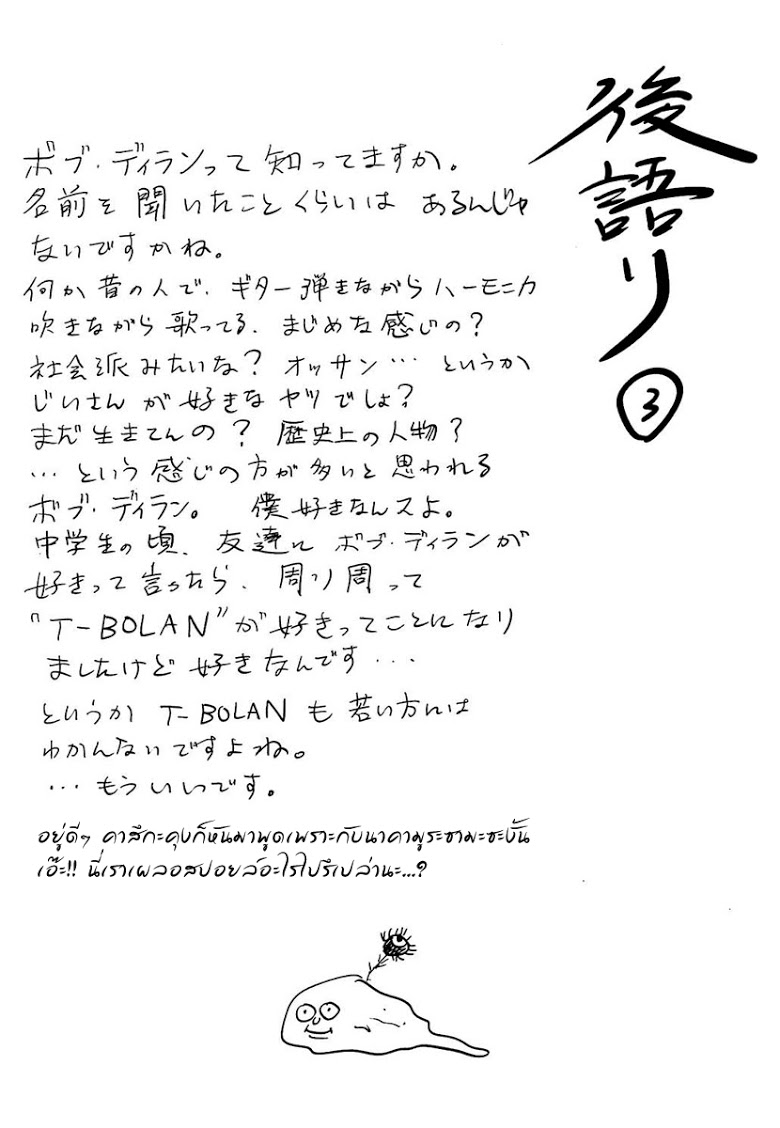 後語り
③
ボブ・ディランって知ってますか。
名前を聞いたことくらいは あるんじゃ
ないですかね。
何か昔の人で、ギター弾きながらハーモニカ
吹きながら歌ってる、まじめな感じの?
社会派みたいな? オッサン… というか
じいさんが好きなヤツでしょ?
まだ生きてんの? 歴史上の人物?
…という感じの方が多いと思われる
ボブ・ディラン。 僕好きなんスよ。
中学生の頃、友達に ボブ・ディランが
好きって言ったら、周り周って
"T-BOLAN"が好きってことになり
ましたけど好きなんです…
というか T-BOLANも若い方には
わかんないですよね。
…もういいです。
อยู่ดีๆ คาสึกะคุงก็หันมาพูดเพราะกับนาคามุระซามะซะงั้น
เอ๊ะ!! นี่เราเผลอสปอยล์อะไรไปรึเปล่านะ...?